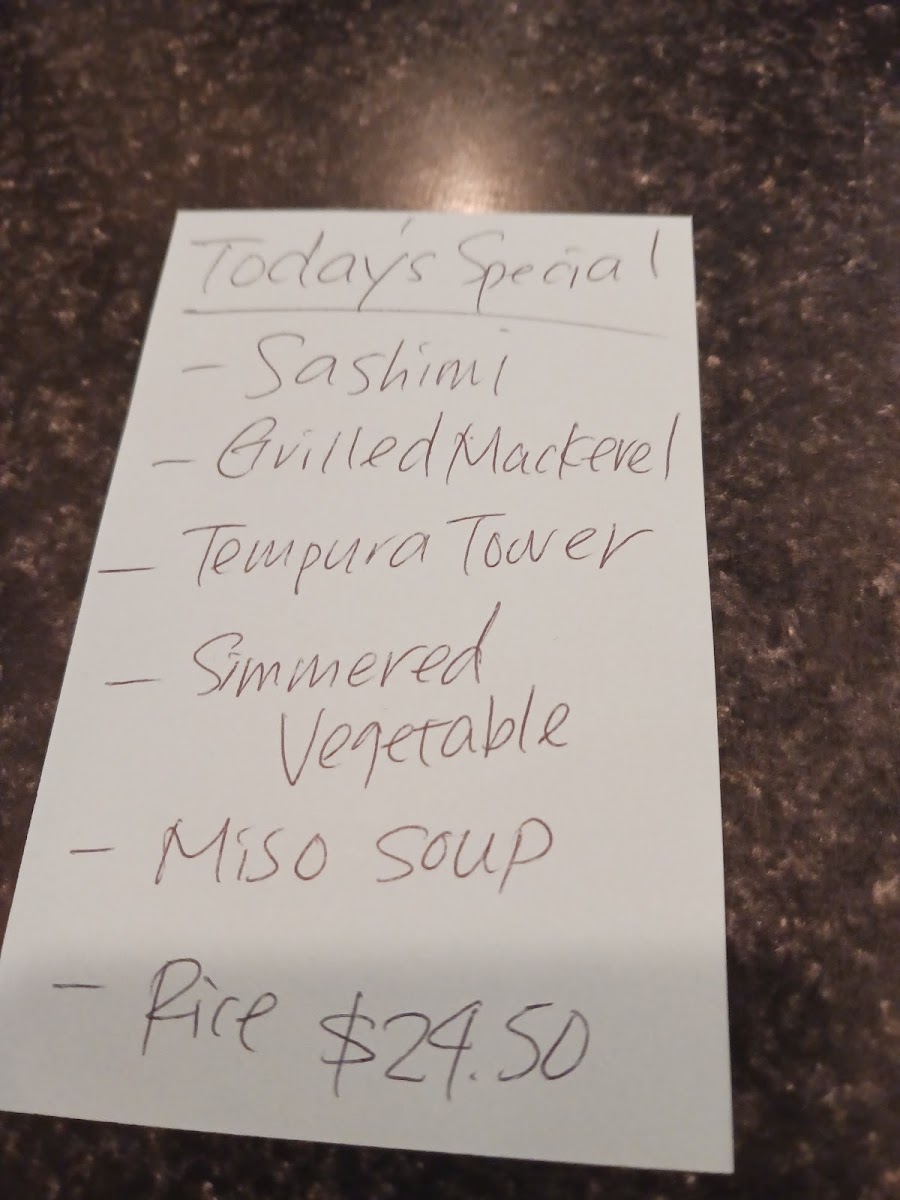 Today's Special
- Sashimi
- Grilled Mackerel
- Tempura Tower
- Simmered
Vegetable
- Miso soup
- Rice $24.50